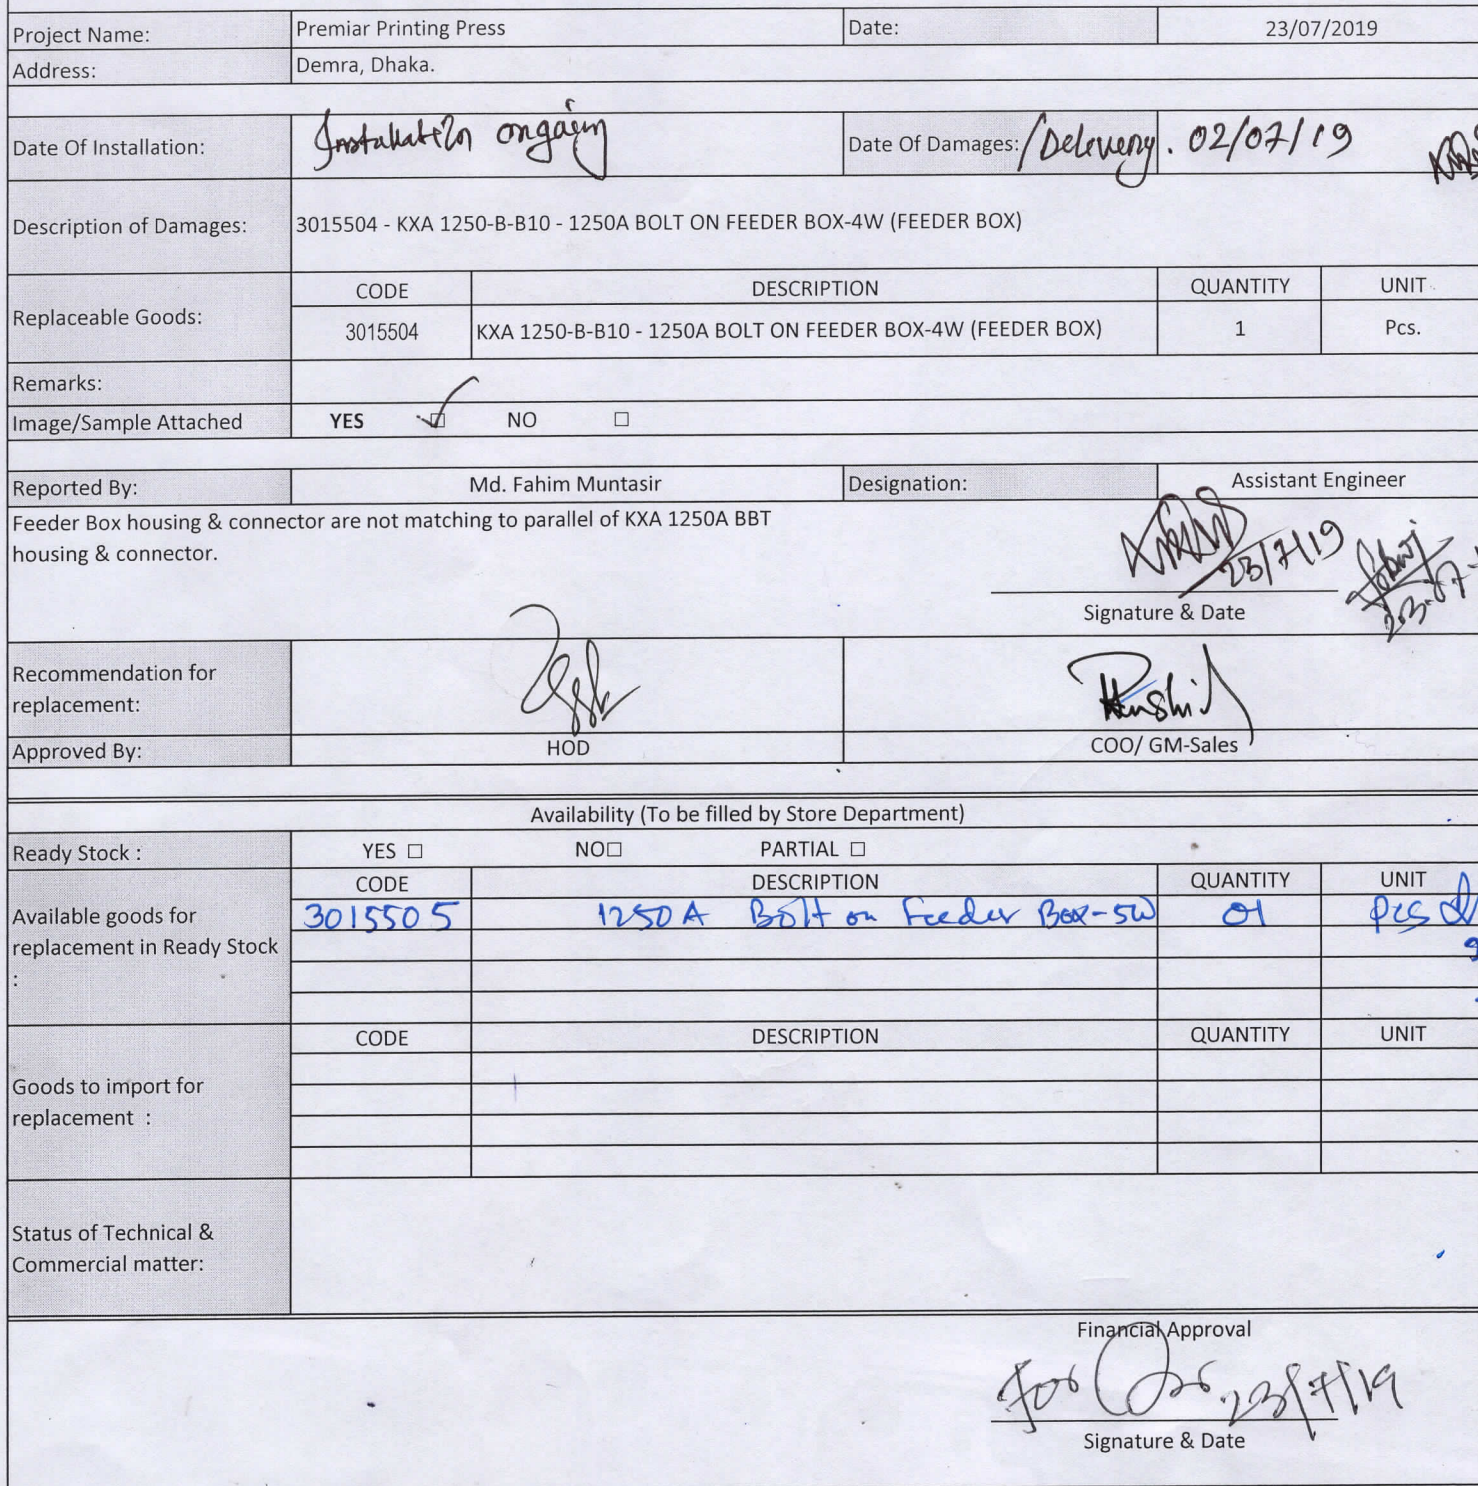 Project Name: Premiar Printing Press Date: 23/07/2019
Address: Demra, Dhaka.
Date Of Installation: Installation ongoing Date Of Damages: /Delevery. 02/07/19
Description of Damages: 3015504 - KXA 1250-B-B10 - 1250A BOLT ON FEEDER BOX-4W (FEEDER BOX)
Replaceable Goods:
CODE DESCRIPTION QUANTITY UNIT
3015504 KXA 1250-B-B10 - 1250A BOLT ON FEEDER BOX-4W (FEEDER BOX) 1 Pcs.
Remarks:
Image/Sample Attached YES ☑ NO ☐
Reported By: Md. Fahim Muntasir Designation: Assistant Engineer
Feeder Box housing & connector are not matching to parallel of KXA 1250A BBT
housing & connector.
23/7/19
23.07
Signature & Date
Recommendation for
replacement:
Approved By: HOD COO/ GM-Sales
Availability (To be filled by Store Department)
Ready Stock : YES ☐ NO☐ PARTIAL ☐
Available goods for
replacement in Ready Stock
:
CODE DESCRIPTION QUANTITY UNIT
3015505 1250A Bolt on Feeder Box-5W 01 pcs
Goods to import for
replacement :
CODE DESCRIPTION QUANTITY UNIT
Status of Technical &
Commercial matter:
Financial Approval
For 23/7/19
Signature & Date